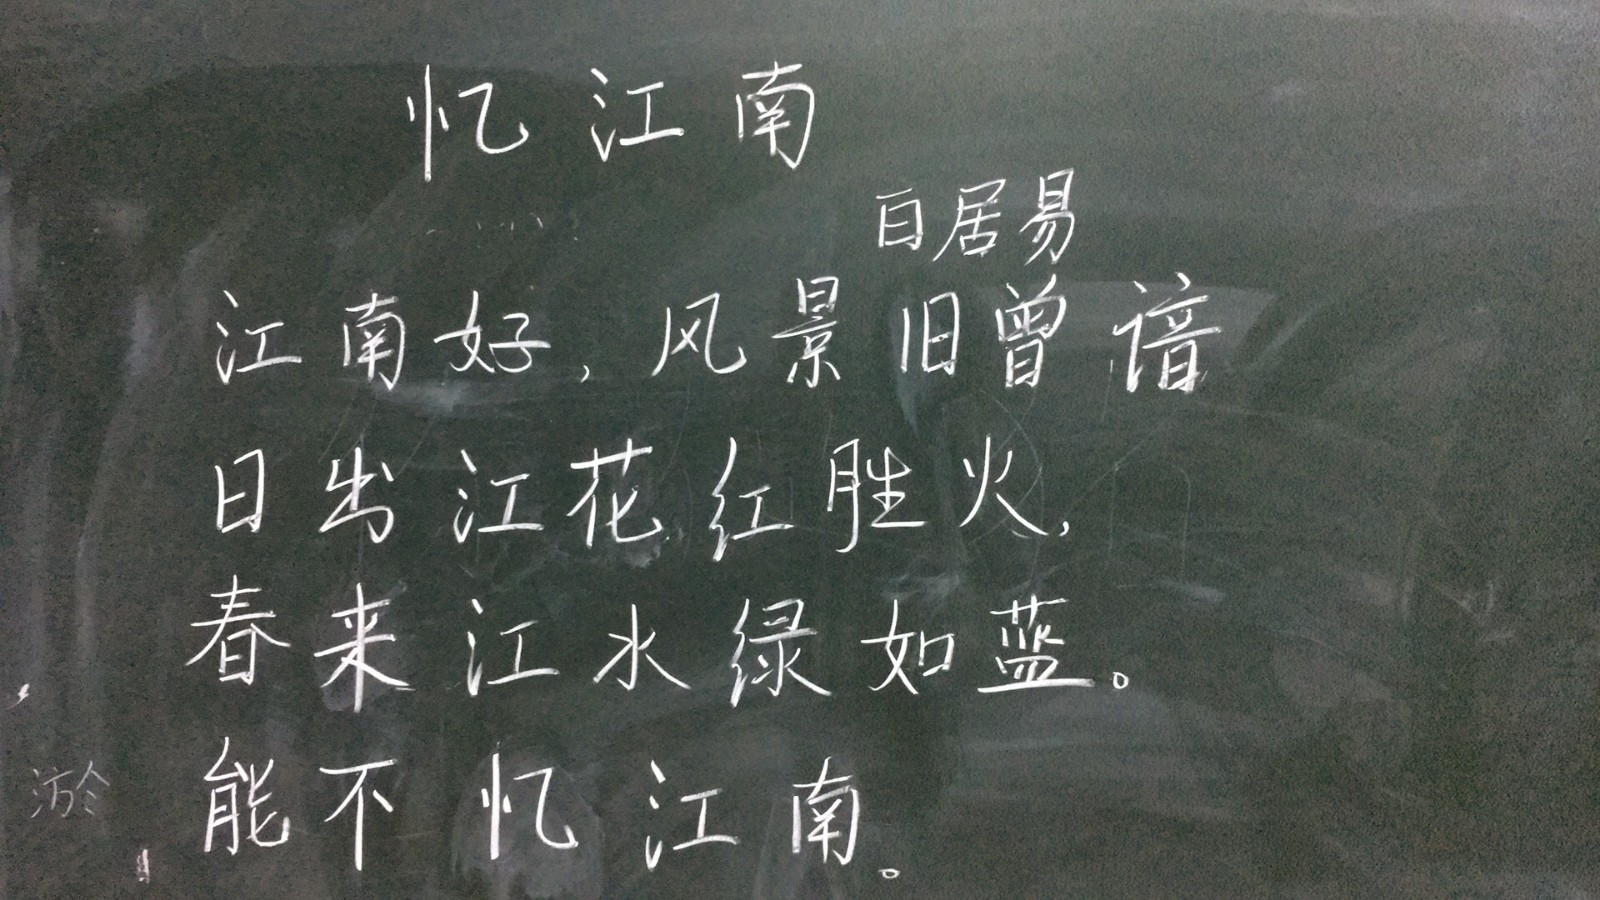 忆江南
白居易
江南好，风景旧曾谙
日出江花红胜火，
春来江水绿如蓝。
能不忆江南。
淤